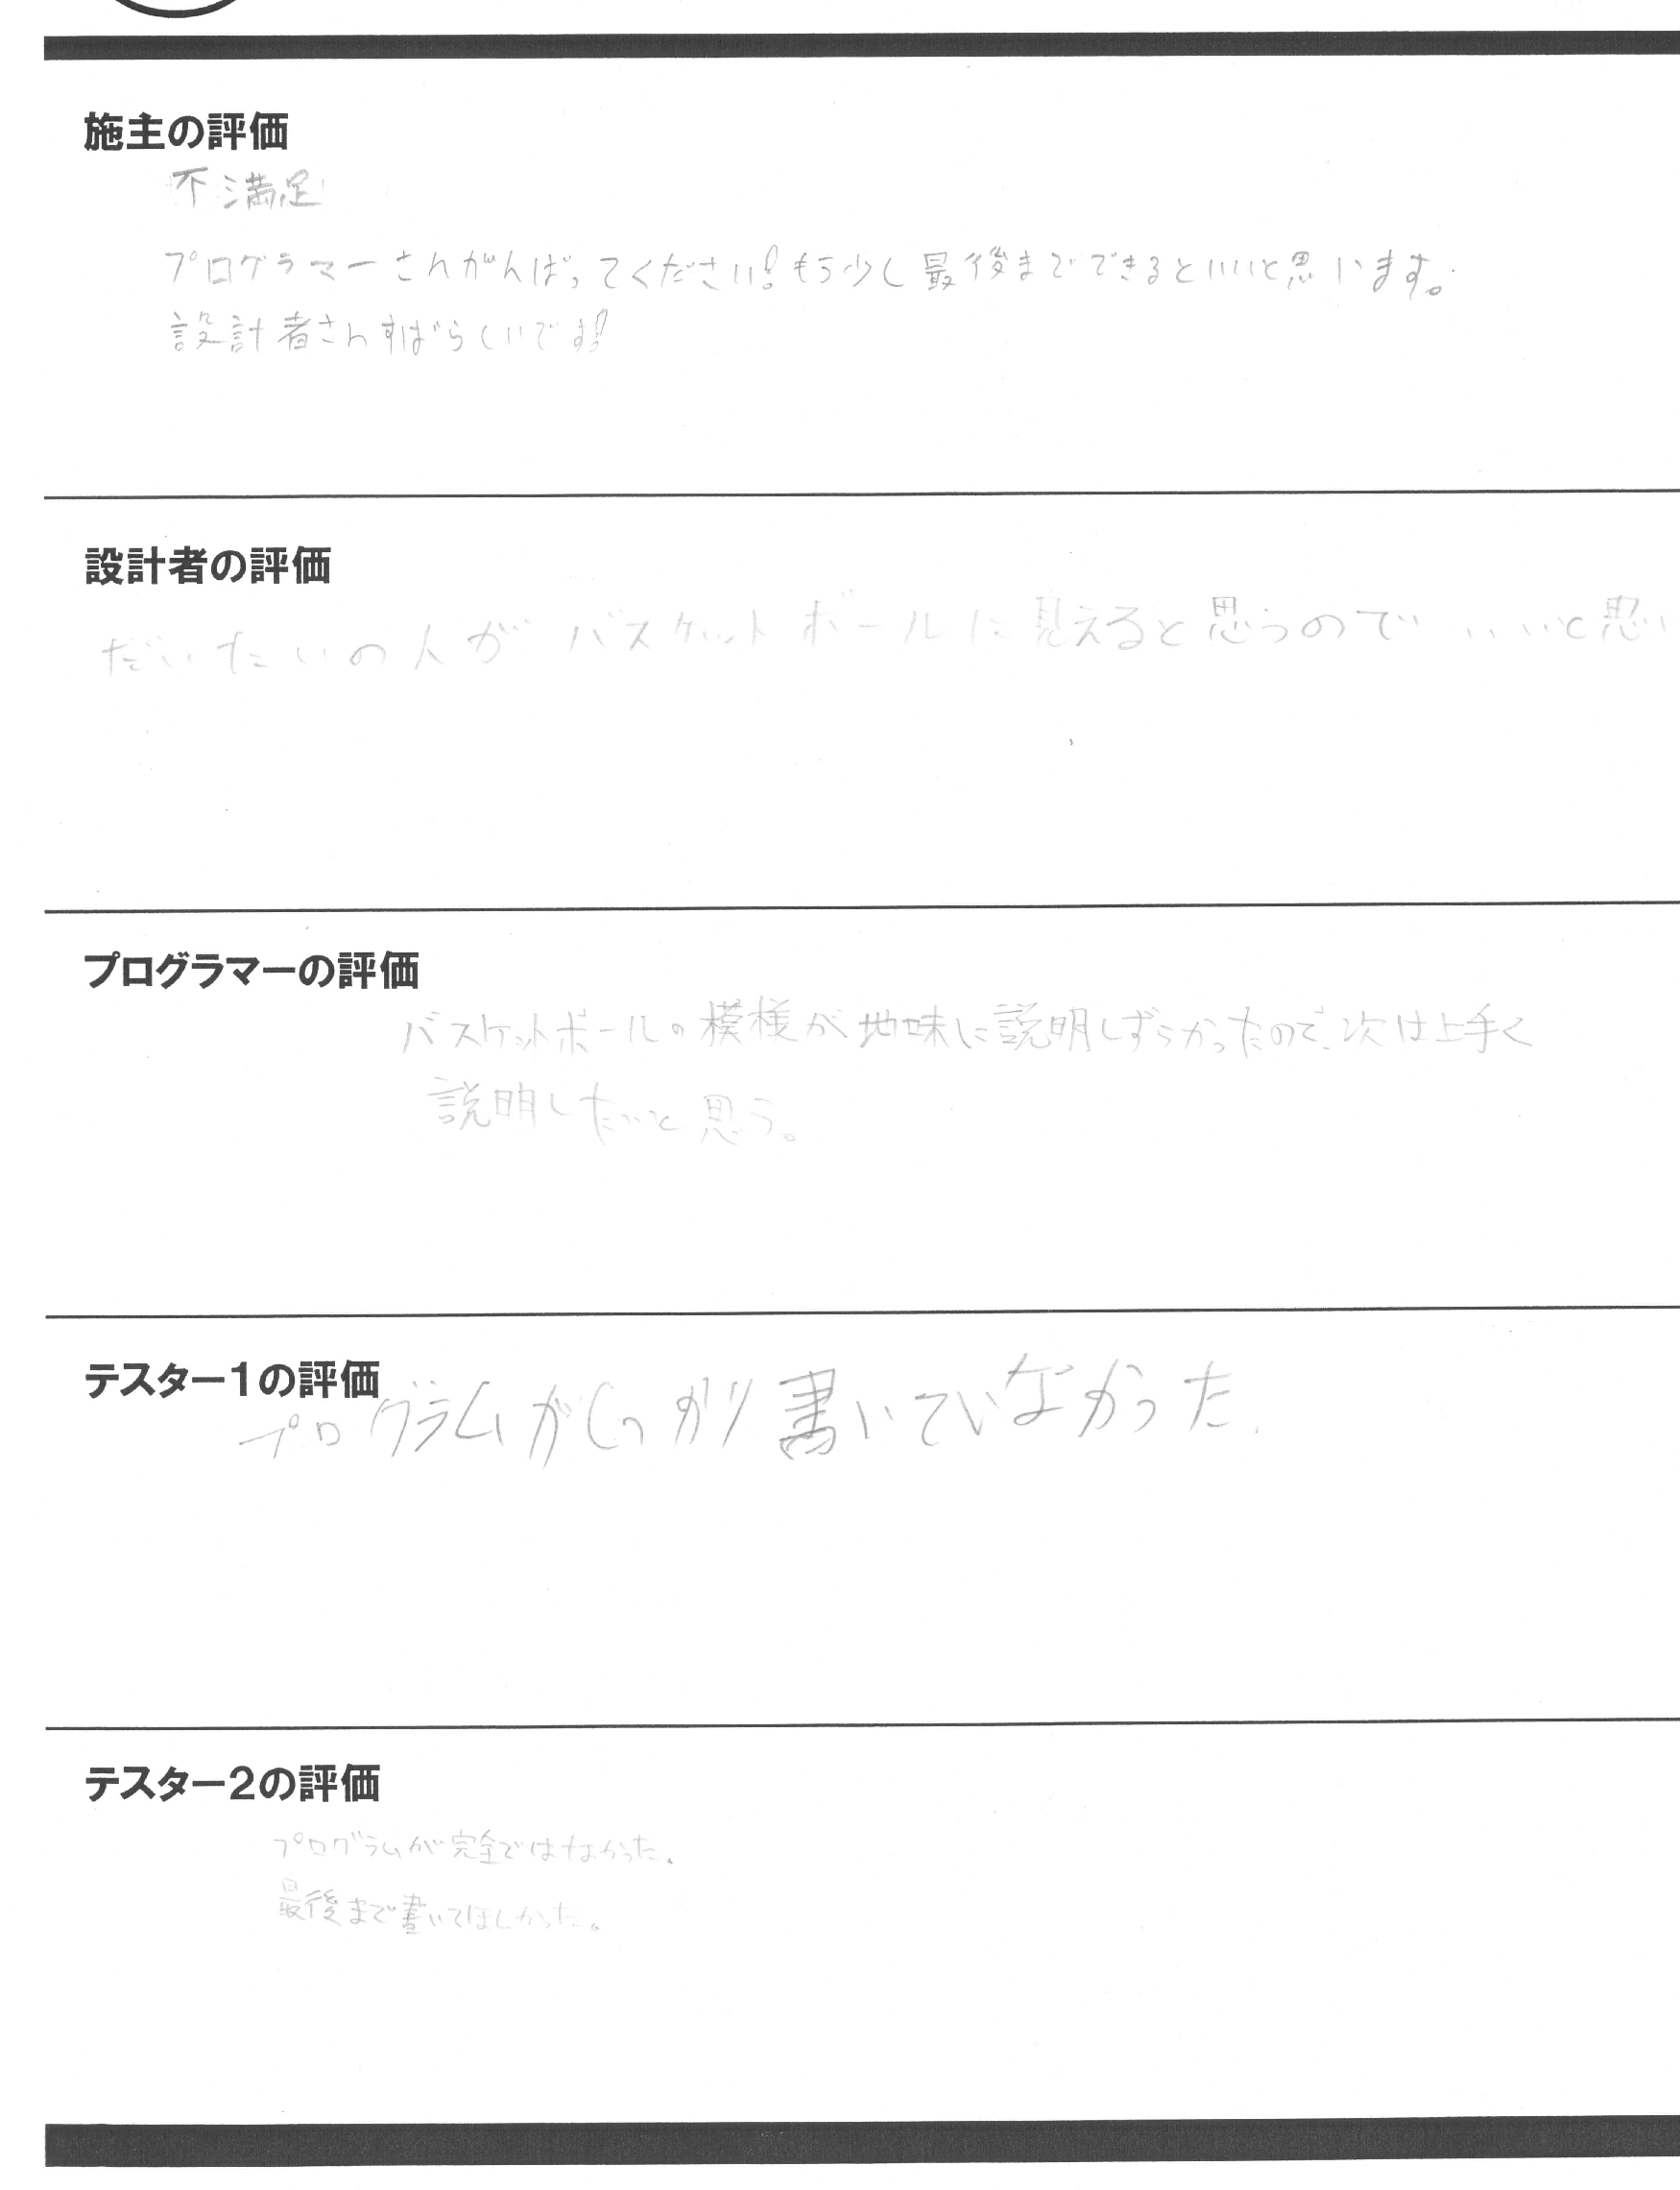 施主の評価
不満足
プログラマーさんがんばってください!もう少し最後までできるといいと思います。
設計者さんすばらしいです!
設計者の評価
だいたいの人がバスケットボールに見えると思うので いいと思い
プログラマーの評価
バスケットボールの模様が地味に説明しずらかったので、次は上手く
説明したいと思う。
テスター1の評価
プログラムがしっかり書いていなかった.
テスター2の評価
プログラムが完全ではなかった。
最後まで書いてほしかった。